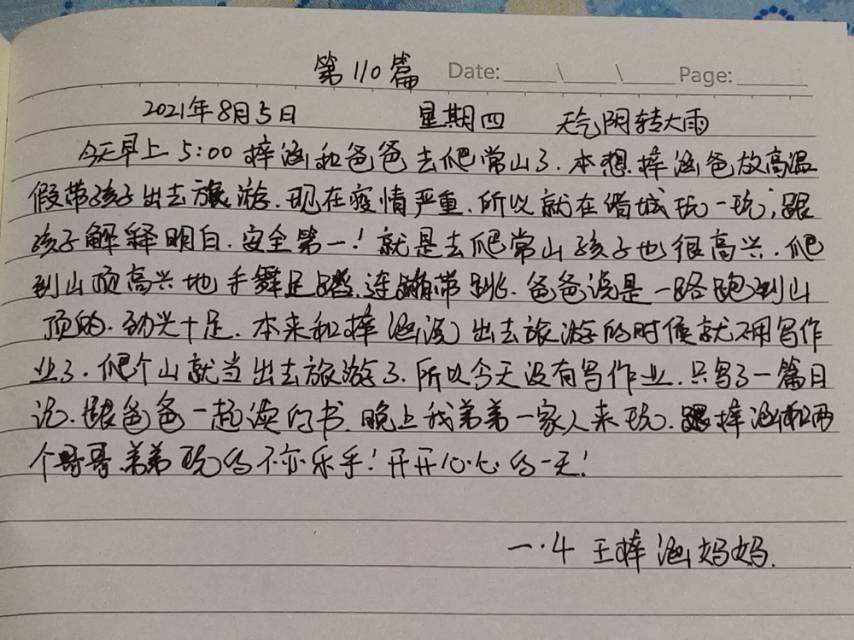 第110篇 Date: \ \ Page:
2021年8月5日 星期四 天气阴转大雨
今天早上5:00梓涵和爸爸去爬常山了.本想梓涵爸放高温
假带孩子出去旅游.现在疫情严重.所以就在诸城玩一玩,跟
孩子解释明白.安全第一!就是去爬常山孩子也很高兴.爬
到山顶高兴地手舞足蹈.连蹦带跳.爸爸说是一路跑到山
顶的.劲头十足.本来和梓涵说出去旅游的时候就不用写作
业了.爬个山就当出去旅游了.所以今天没有写作业.只写了一篇日
记.跟爸爸一起读的书.晚上我弟弟一家人来玩.跟梓涵和两
个哥哥弟弟玩的不亦乐乎!开开心心的一天!
一.4 王梓涵妈妈.